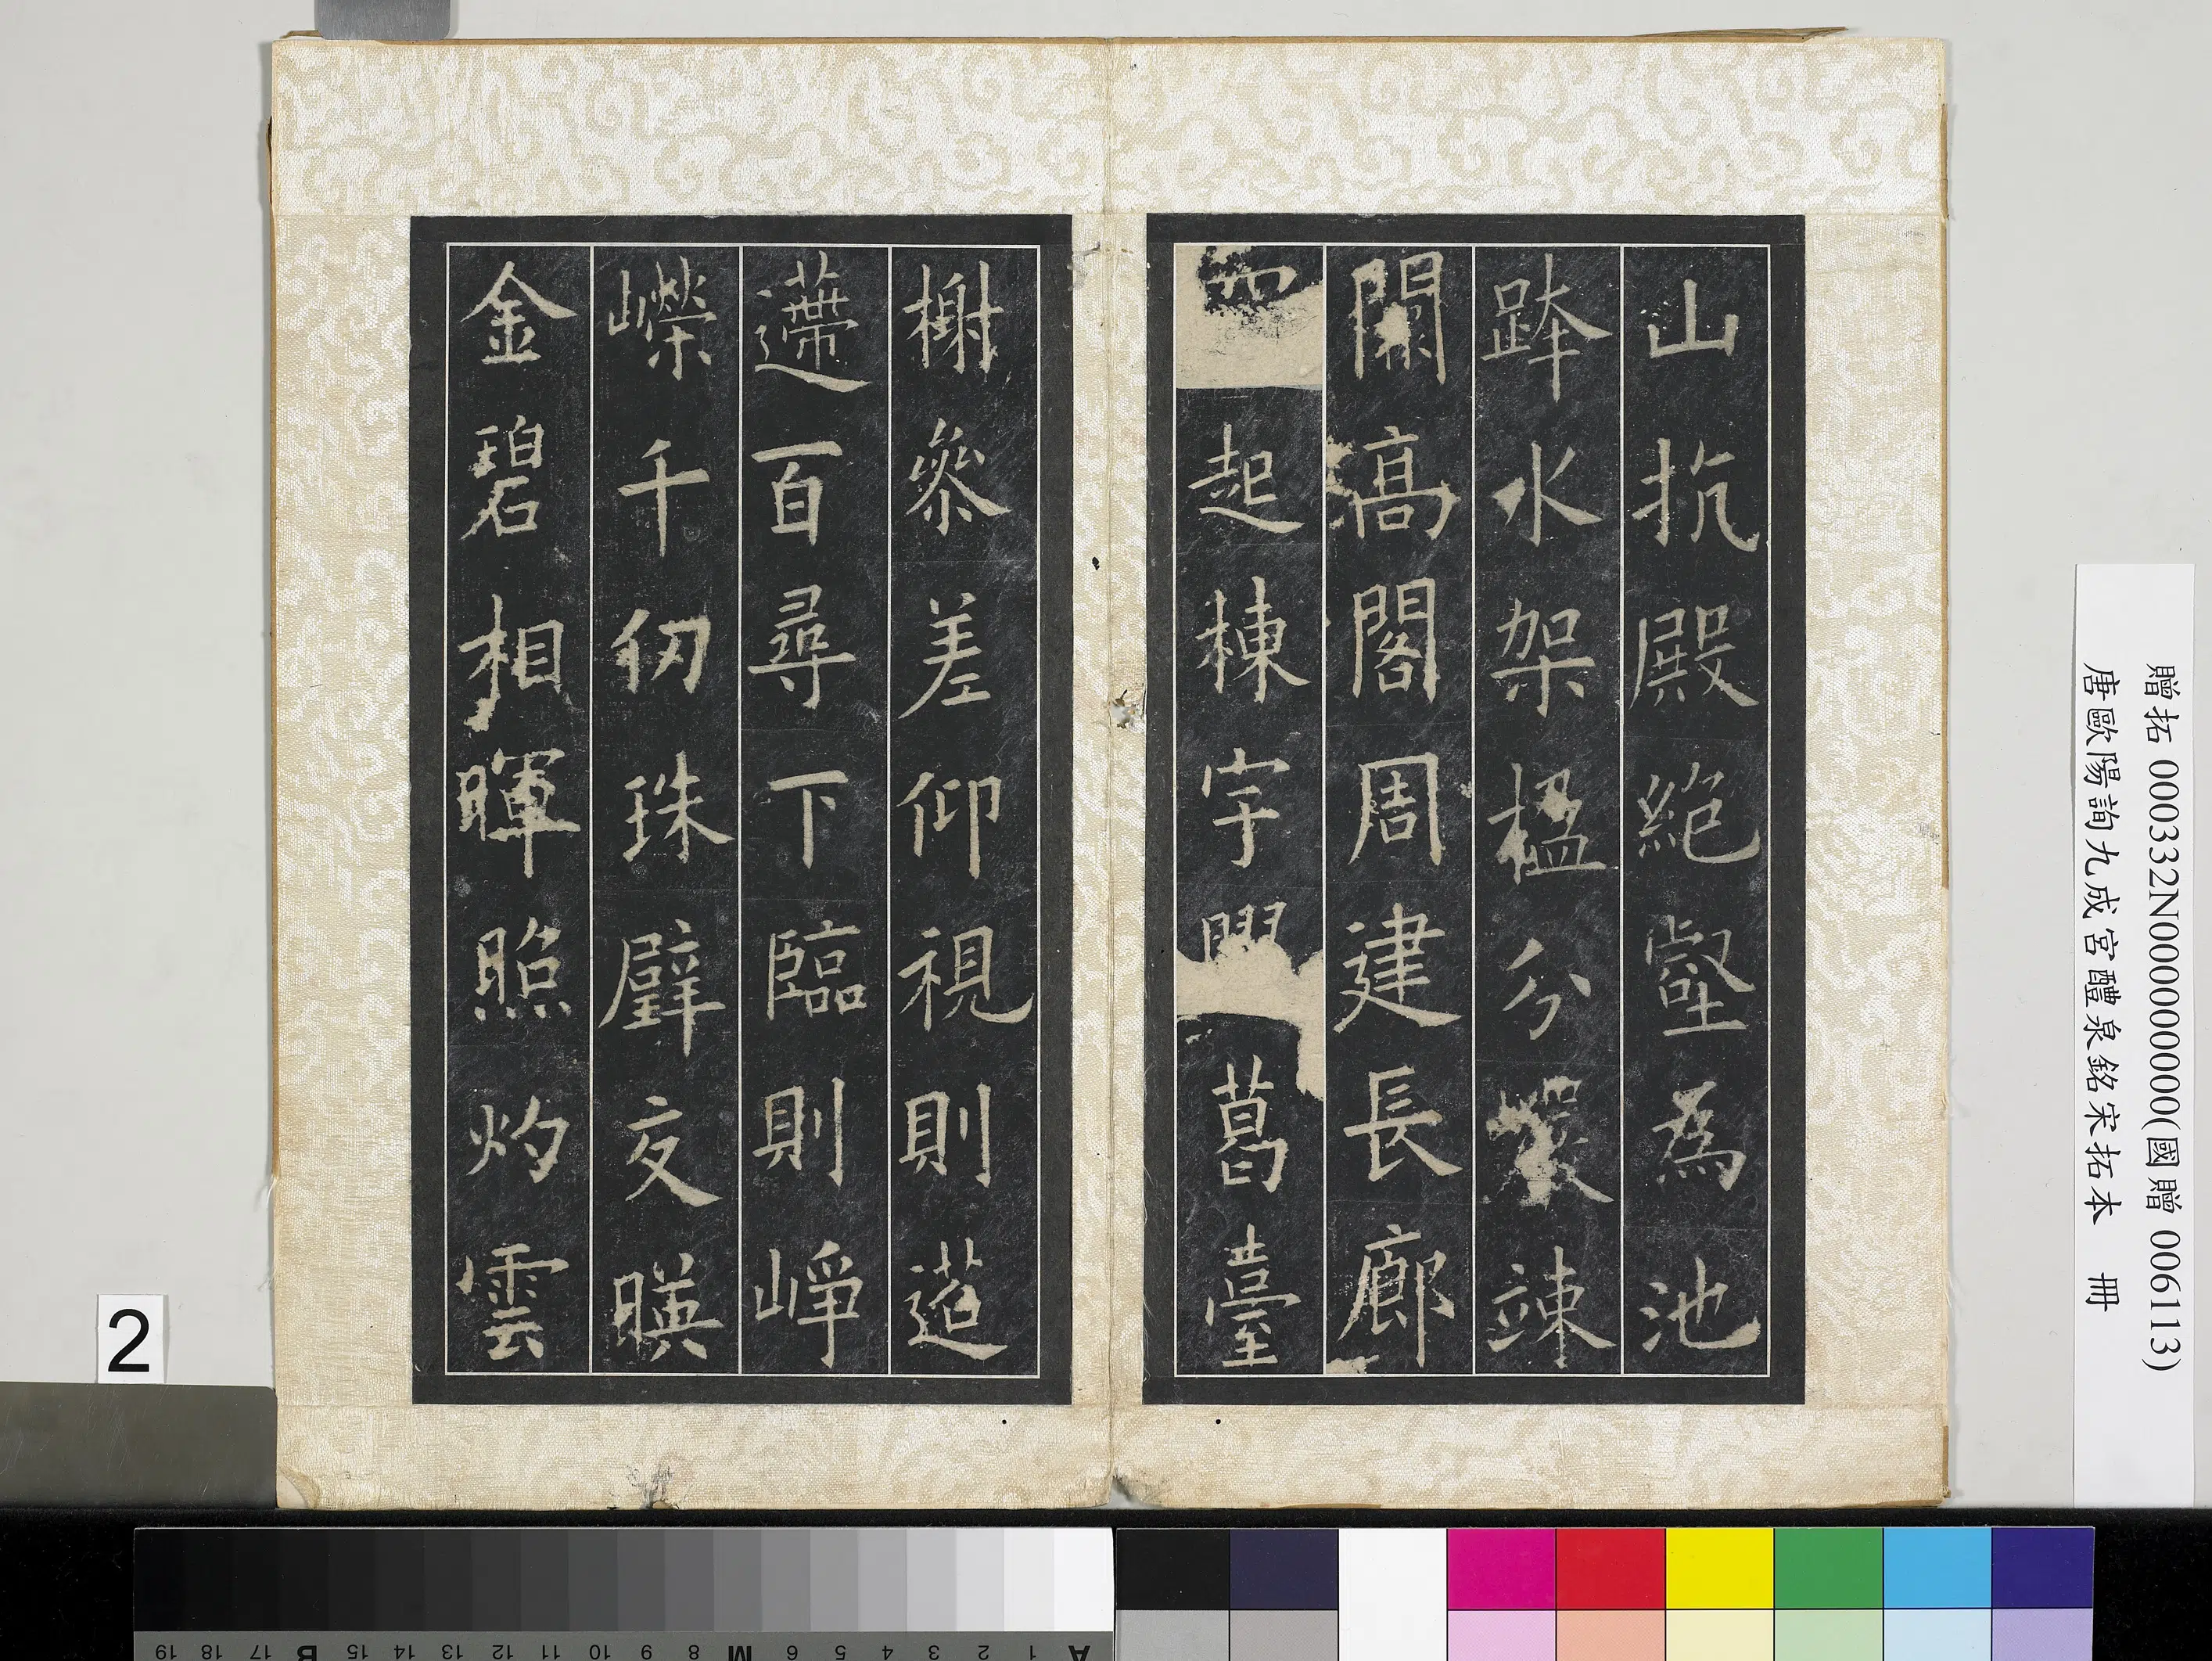 山抗殿絕壑為池
跨水架楹分巖竦
闕高閣周建長廊
四起棟宇膠葛臺
榭參差仰視則迢
遰百尋下臨則崢
嶸千仞珠璧交暎
金碧相暉照灼雲
贈拓 000332N000000000(國贈 006113)
唐歐陽詢九成宮醴泉銘宋拓本 冊
2
A 1 2 3 4 5 6 M 8 9 10 11 12 13 14 15 B 17 18 19